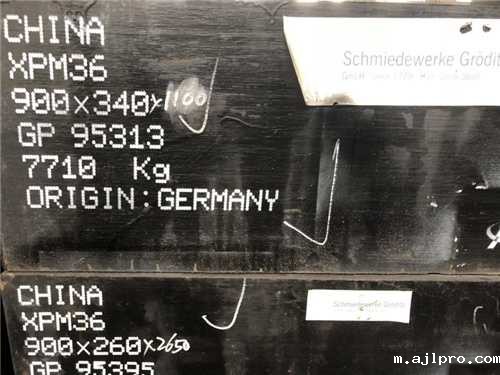 CHINA
XPM36
900x340x1100
GP 95313
7710 Kg
ORIGIN:GERMANY
Schmiedewerke Grödit
CHINA
XPM36
900x260x2650
GP 95395
Schmiedewerke Grödit
m.ajlpro.com